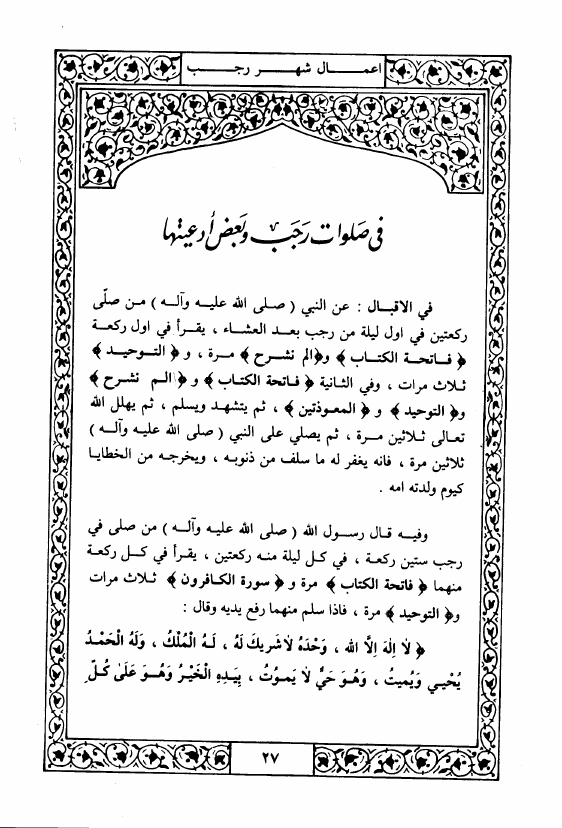 اعمال شهر رجب
في صلوات رجب وبعض أدعيتها
في الاقبال : عن النبي ( صلى الله عليه وآله ) من صلّى
ركعتين في اول ليلة من رجب بعد العشاء ، يقرأ في اول ركعة
﴿ فاتحة الكتاب ﴾ و﴿الم نشرح ﴾ مرة ، و ﴿ التوحيد ﴾
ثلاث مرات ، وفي الثانية ﴿ فاتحة الكتاب ﴾ و ﴿ الم نشرح ﴾
و﴿ التوحيد ﴾ و ﴿ المعوذتين ﴾ ، ثم يتشهد ويسلم ، ثم يهلل الله
تعالى ثلاثين مرة ، ثم يصلي على النبي ( صلى الله عليه وآله )
ثلاثين مرة ، فانه يغفر له ما سلف من ذنوبه ، ويخرجه من الخطايا
كيوم ولدته امه .
وفيه قال رسول الله ( صلى الله عليه وآله ) من صلى في
رجب ستين ركعة ، في كل ليلة منه ركعتين ، يقرأ في كل ركعة
منهما ﴿ فاتحة الكتاب ﴾ مرة و ﴿ سورة الكافرون ﴾ ثلاث مرات
و﴿ التوحيد ﴾ مرة ، فاذا سلم منهما رفع يديه وقال :
﴿ لاَ اِلهَ اِلاَّ الله ، وَحْدَهُ لاَ شَرِيكَ لَهُ ، لَهُ الْمُلْكُ ، وَلَهُ الْحَمْدُ
يُحْيي وَيُميتُ ، وَهُوَ حَيٌّ لاَ يَموُتُ ، بِيَدِهِ الْخَيْرُ وَهُوَ عَلَىٰ كُلِّ
٢٧